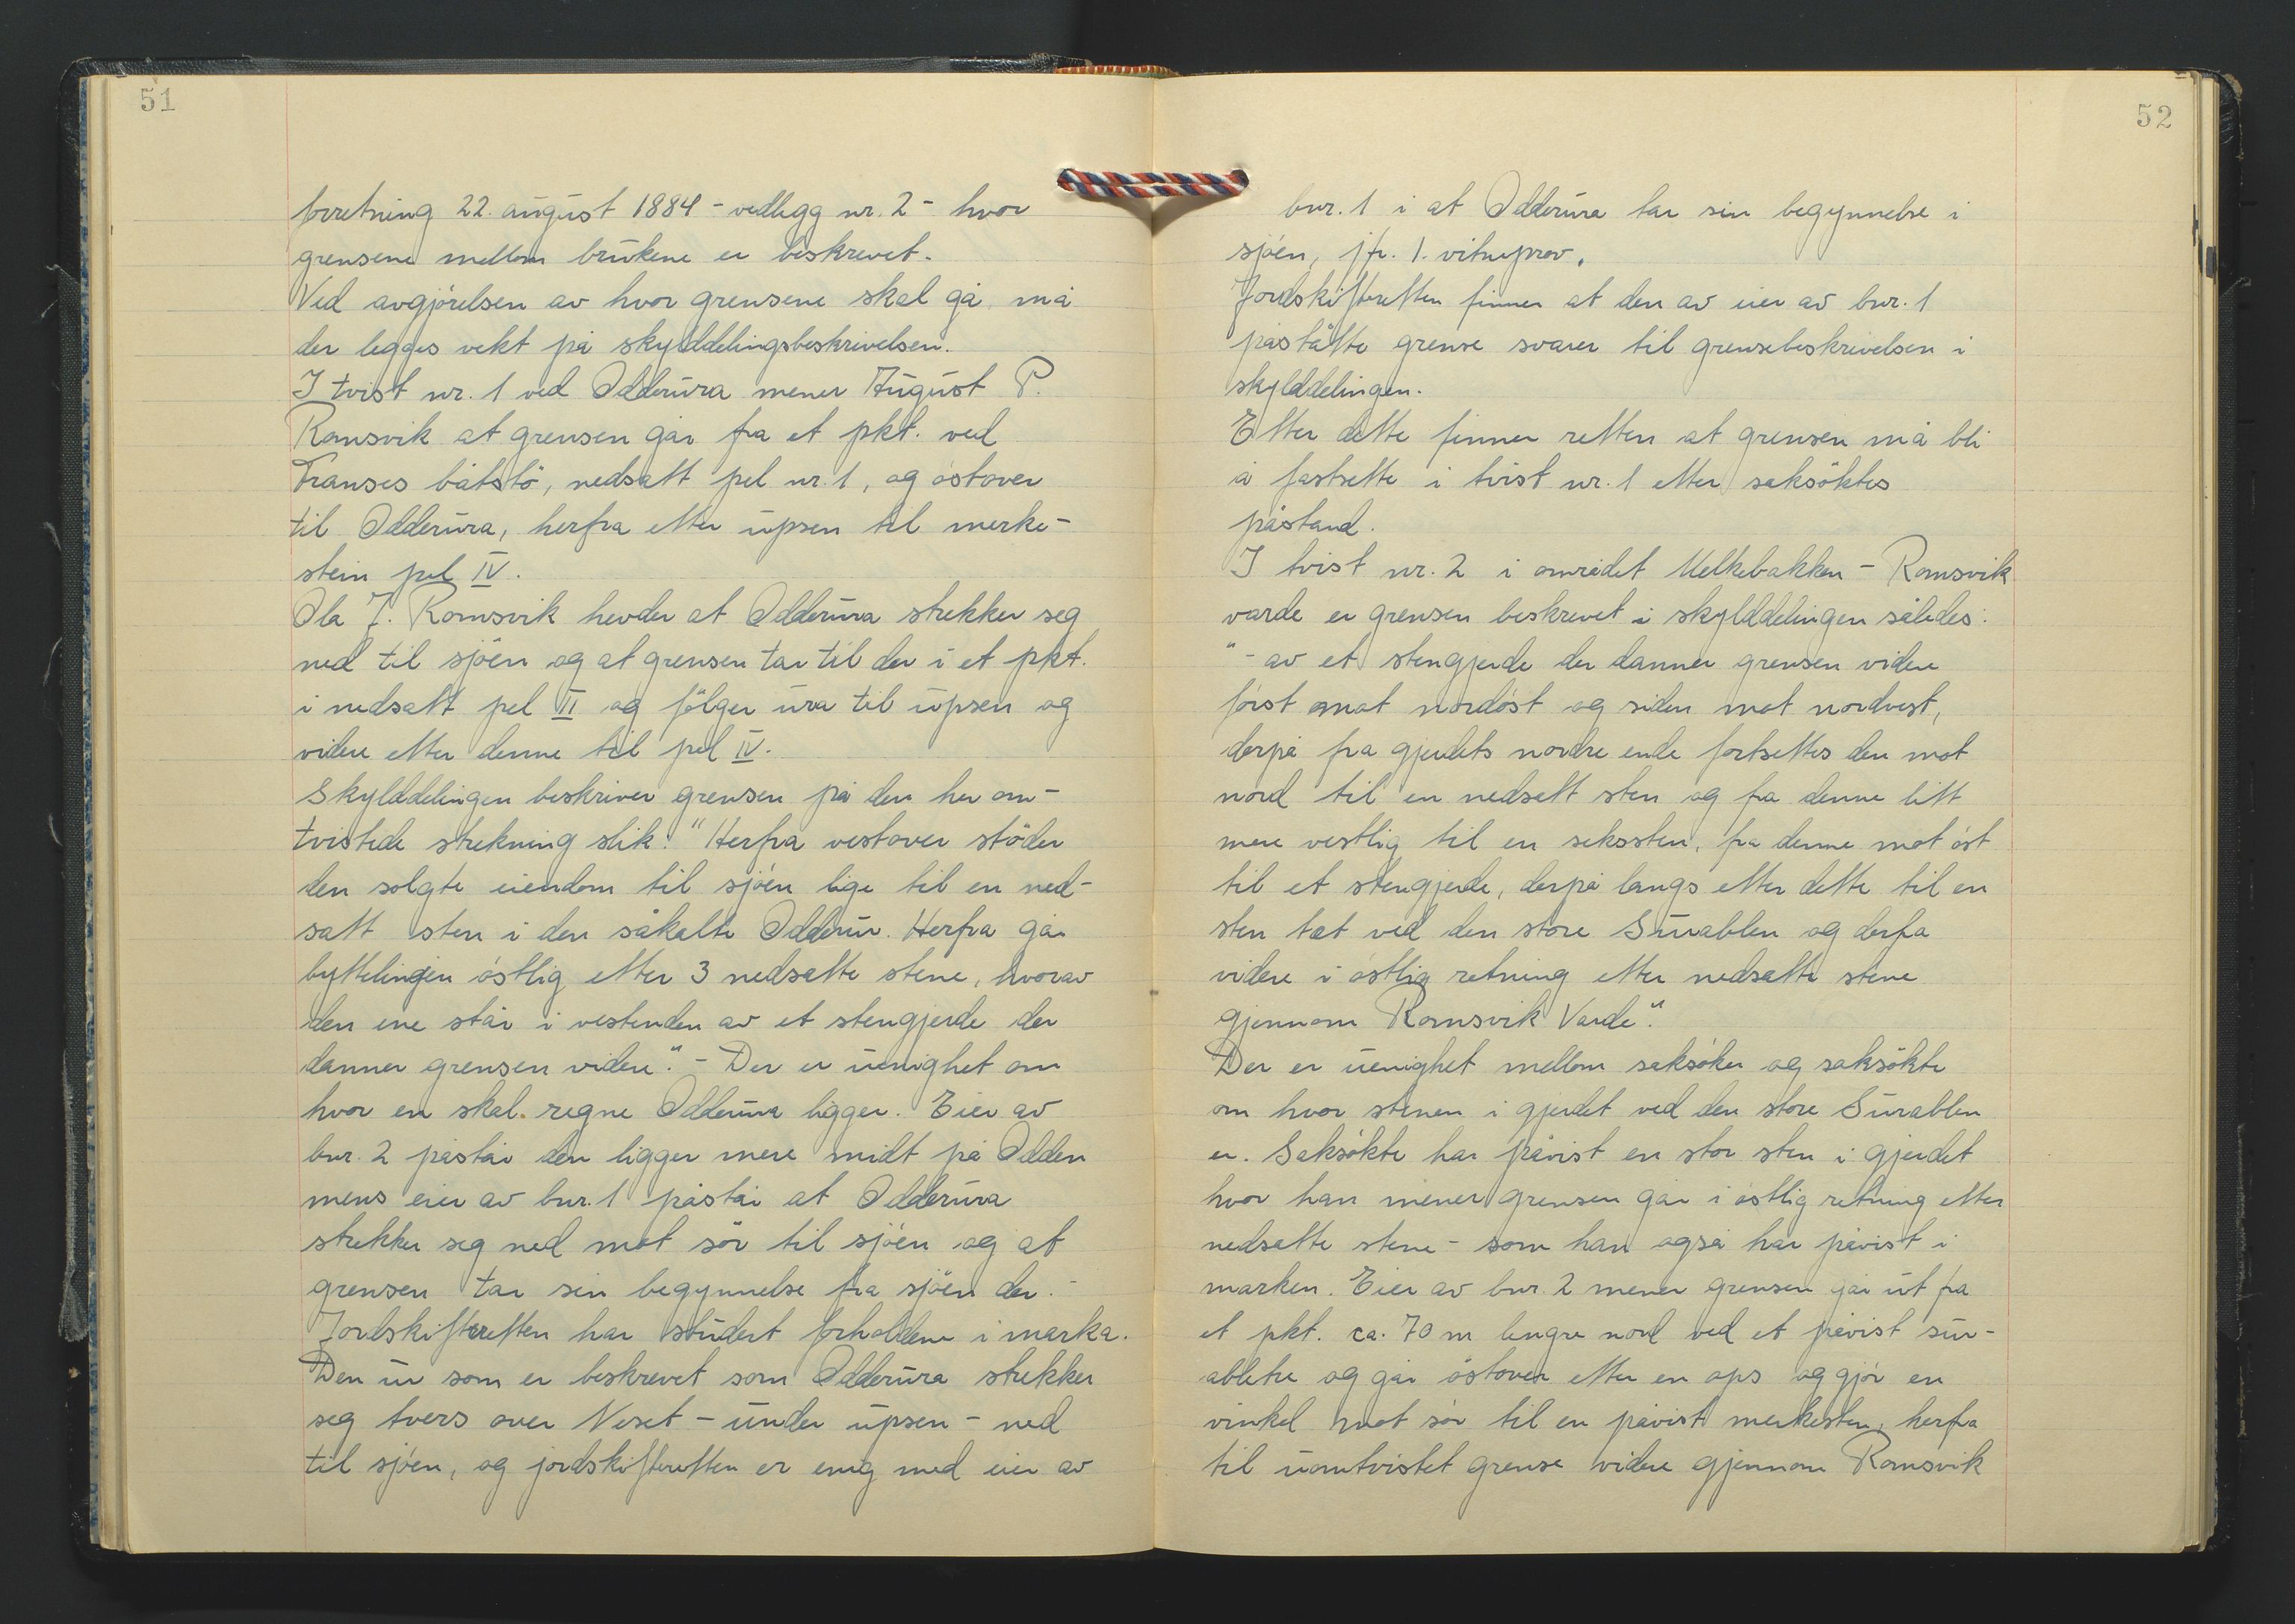 51
forretning 22. august 1884 - vedlegg nr. 2 - hvor
grensene mellom brukene er beskrevet.
Ved avgjörelsen av hvor grensene skal gå må
der legges vekt på skylddelingsbeskrivelsen.
I tvist nr. 1 ved Odderura mener August P.
Romsvik at grensen går fra et pkt. ved
Franses båtstö, nedsatt pel nr. 1, og östover
til Odderura, herfra etter upsen til merke-
stein pel IV.
Ola J. Romsvik hevder at Odderura strekker seg
ned til sjöen og at grensen tar til der i et pkt.
i nedsatt pel II og fölger ura til upsen og
videre etter denne til pel IV.
Skylddelingen beskriver grensen på den her om-
tvistede strekning slik: "Herfra vestover stöder
den solgte eiendom til sjöen lige til en ned-
satt sten i den såkalte Odderur. Herfra går
byttelinjen östlig etter 3 nedsatte stene, hvorav
den ene står i vestenden av et stengjerde der
danner grensen videre". - Der er uenighet om
hvor en skal regne Odderura ligger. Eier av
bnr. 2 påstår den ligger mere midt på Odden
mens eier av bnr. 1 påstår at Odderura
strekker seg ned mot sör til sjöen og at
grensen tar sin begynnelse fra sjöen der. -
Jordskifteretten har studert forholdene i marka.
Den ur som er beskrevet som Odderura strekker
seg tvers over Neset - under upsen - ned
til sjöen, og jordskifteretten er enig med eier av
52
bnr. 1 i at Odderura tar sin begynnelse i
sjöen, jfr. 1. vitneprov.
Jordskifteretten finner at den av eier av bnr. 1
påståtte grense svarer til grensebeskrivelsen i
skylddelingen.
Etter dette finner retten at grensen må bli
å fastsette i tvist nr. 1 etter saksöktes
påstand.
I tvist nr. 2 i området Melkebakken - Romsvik
varde er grensen beskrevet i skylddelingen således:
" - av et stengjerde der danner grensen videre
först mot nordöst og siden mot nordvest,
derpå fra gjerdets nordre ende fortsettes den mot
nord til en nedsatt sten og fra denne litt
mere vestlig til en seksten, fra denne mot öst
til et stengjerde, derpå langs etter dette til en
sten tæt ved den store Surablen og derfra
videre i östlig retning etter nedsatte stene
gjennom Romsvik Varde".
Der er uenighet mellom saksöker og saksökte
om hvor stenen i gjerdet ved den store Surablen
er. Saksökte har påvist en stor sten i gjerdet
hvor han mener grensen går i östlig retning etter
nedsatte stene - som han også har påvist i
marken. Eier av bnr. 2 mener grensen går ut fra
et pkt. ca. 70 m lengre nord ved et påvist sur-
abletre og går östover etter en ops og gjör en
vinkel mot sör til en påvist merkesten, herfra
til uomtvistet grense videre gjennom Romsvik